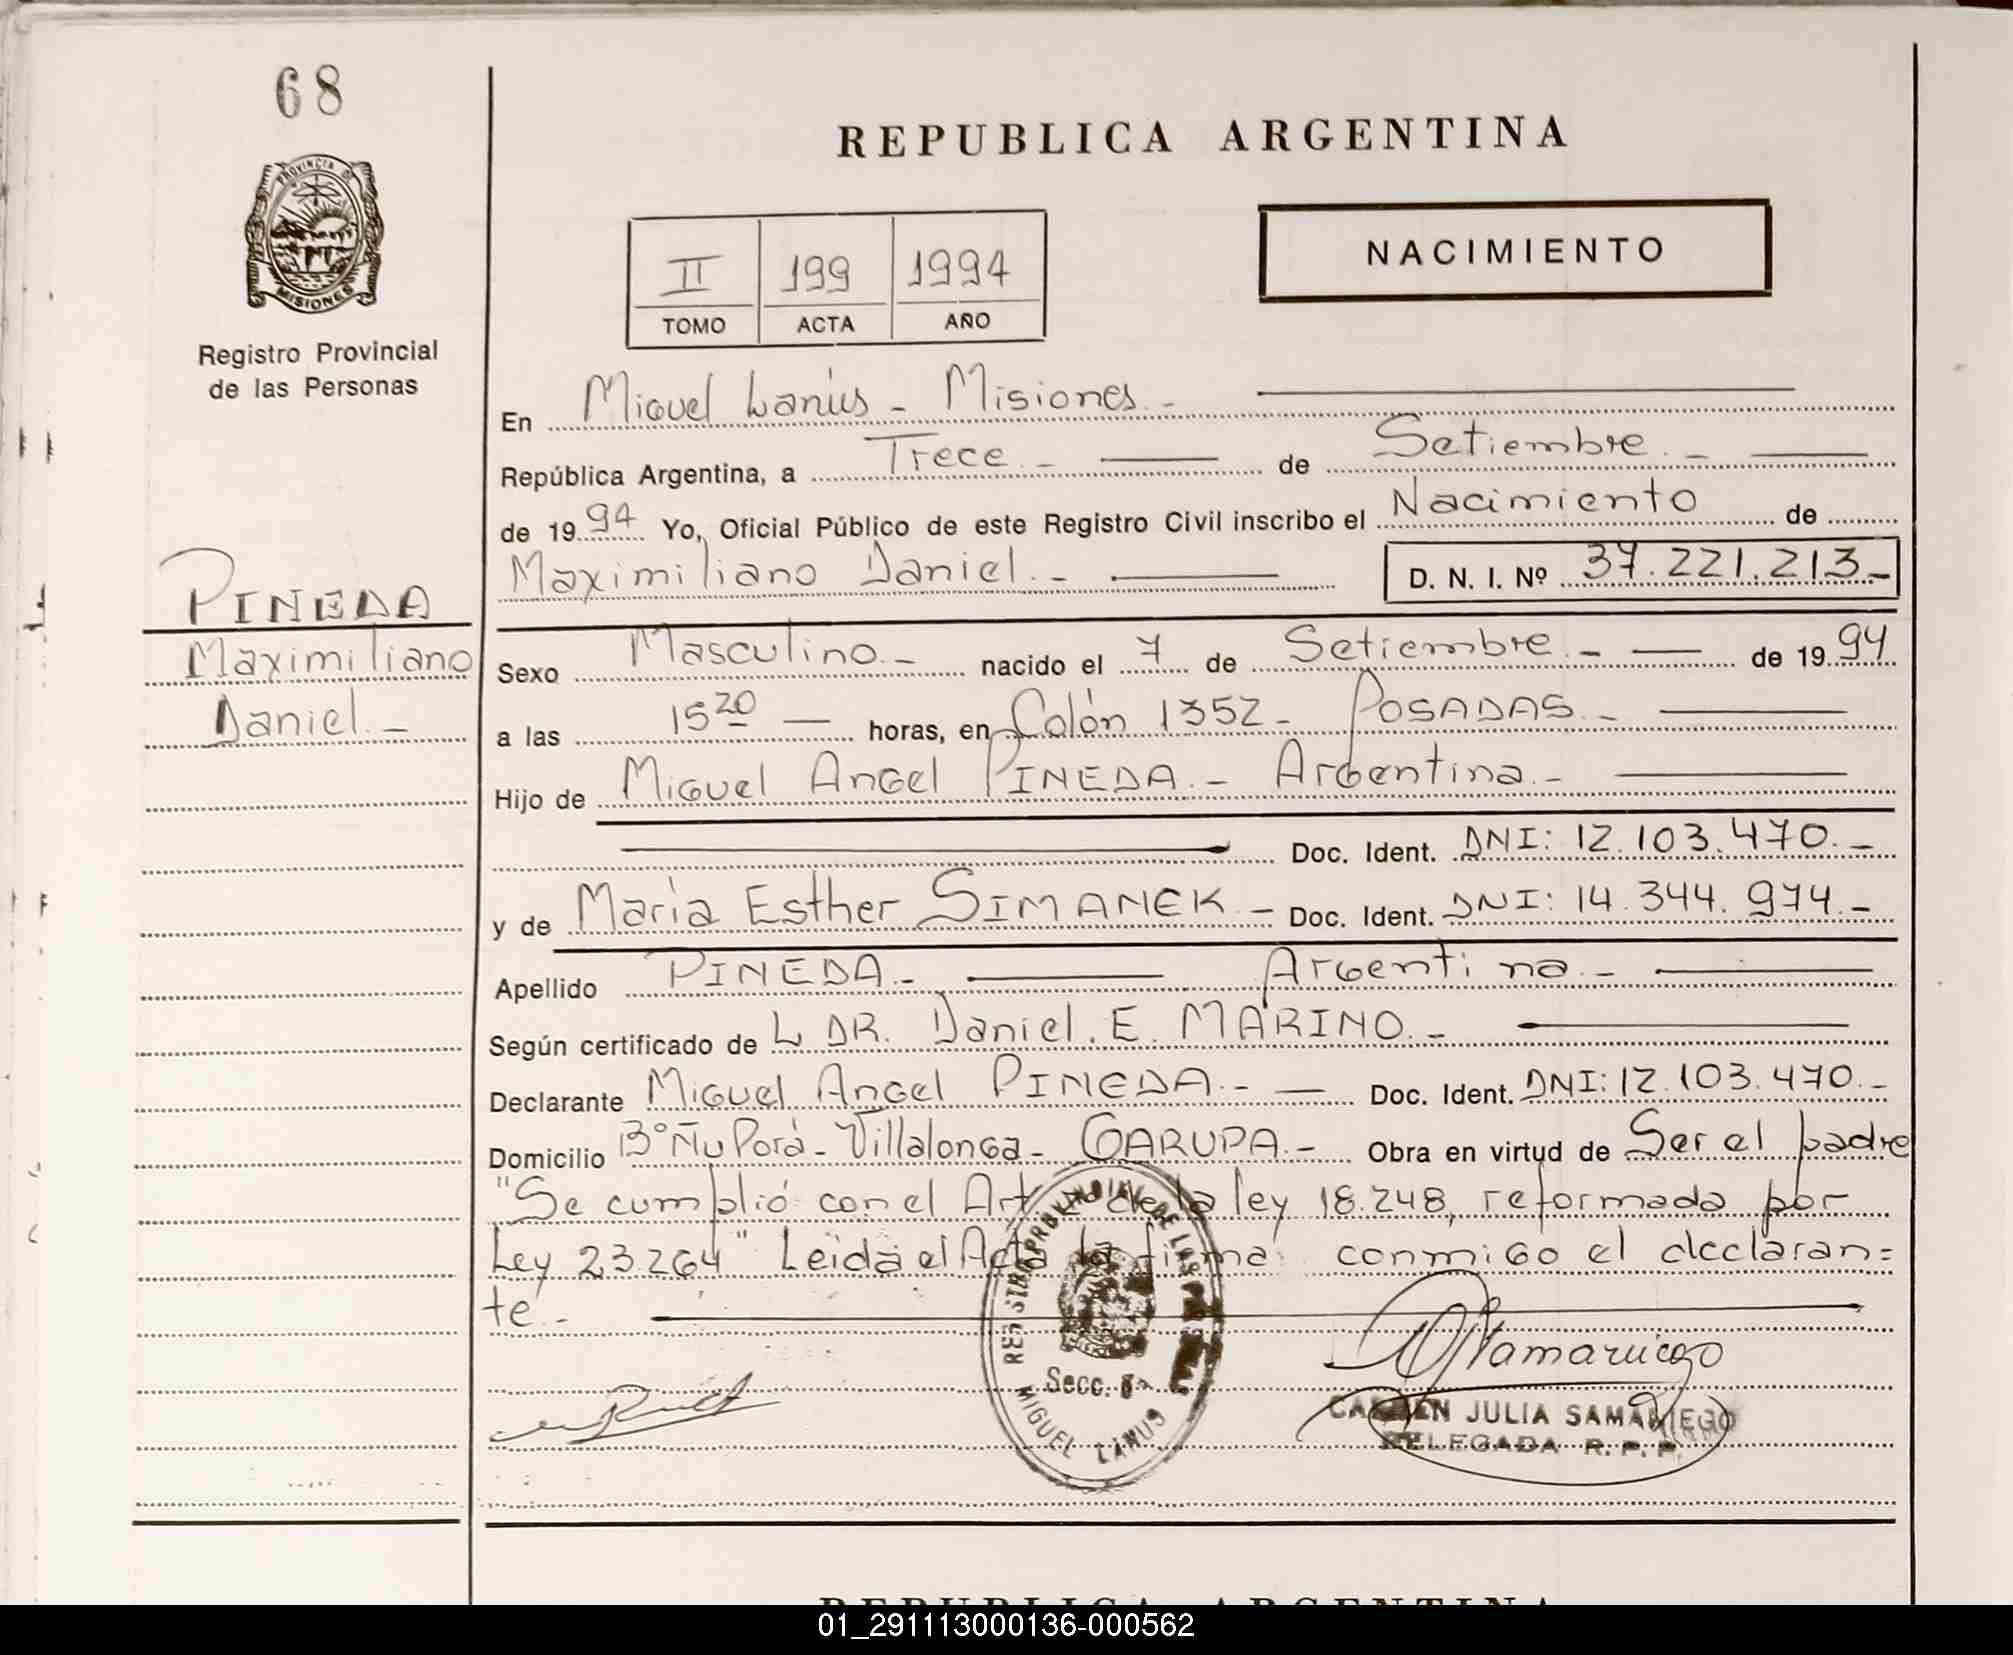 68
REPUBLICA ARGENTINA
PROVINCIA DE
MISIONES
Registro Provincial
de las Personas
NACIMIENTO
II 199 1994
TOMO ACTA AÑO
En Miguel Lanús - Misiones -
República Argentina, a Trece - de Setiembre -
de 1994 Yo, Oficial Público de este Registro Civil inscribo el Nacimiento de
Maximiliano Daniel - D. N. I. Nº 37.221.213-
PINEDA
Maximiliano
Daniel -
Sexo Masculino - nacido el 7 de Setiembre - de 1994
a las 15 20 horas, en Colón 1352 - POSADAS -
Hijo de Miguel Angel PINEDA - Argentina -
Doc. Ident. DNI: 12.103.470 -
y de María Esther SIMANEK - Doc. Ident. DNI: 14.344.974 -
Apellido PINEDA - Argentina -
Según certificado de L DR. Daniel. E. MARINO -
Declarante Miguel Angel PINEDA - Doc. Ident. DNI: 12.103.470 -
Domicilio Bº Ñu Porá - Villalonga - GARUPA - Obra en virtud de Ser el padre
"Se cumplió con el Art. de la ley 18.248, reformada por
Ley 23.264" Leida el Acta la firma conmigo el declaran=
te -
Secc. 8ª
MIGUEL LANUS
CARMEN JULIA SAMANIEGO
DELEGADA R. P. P.
REPUBLICA ARGENTINA
01_291113000136-000562